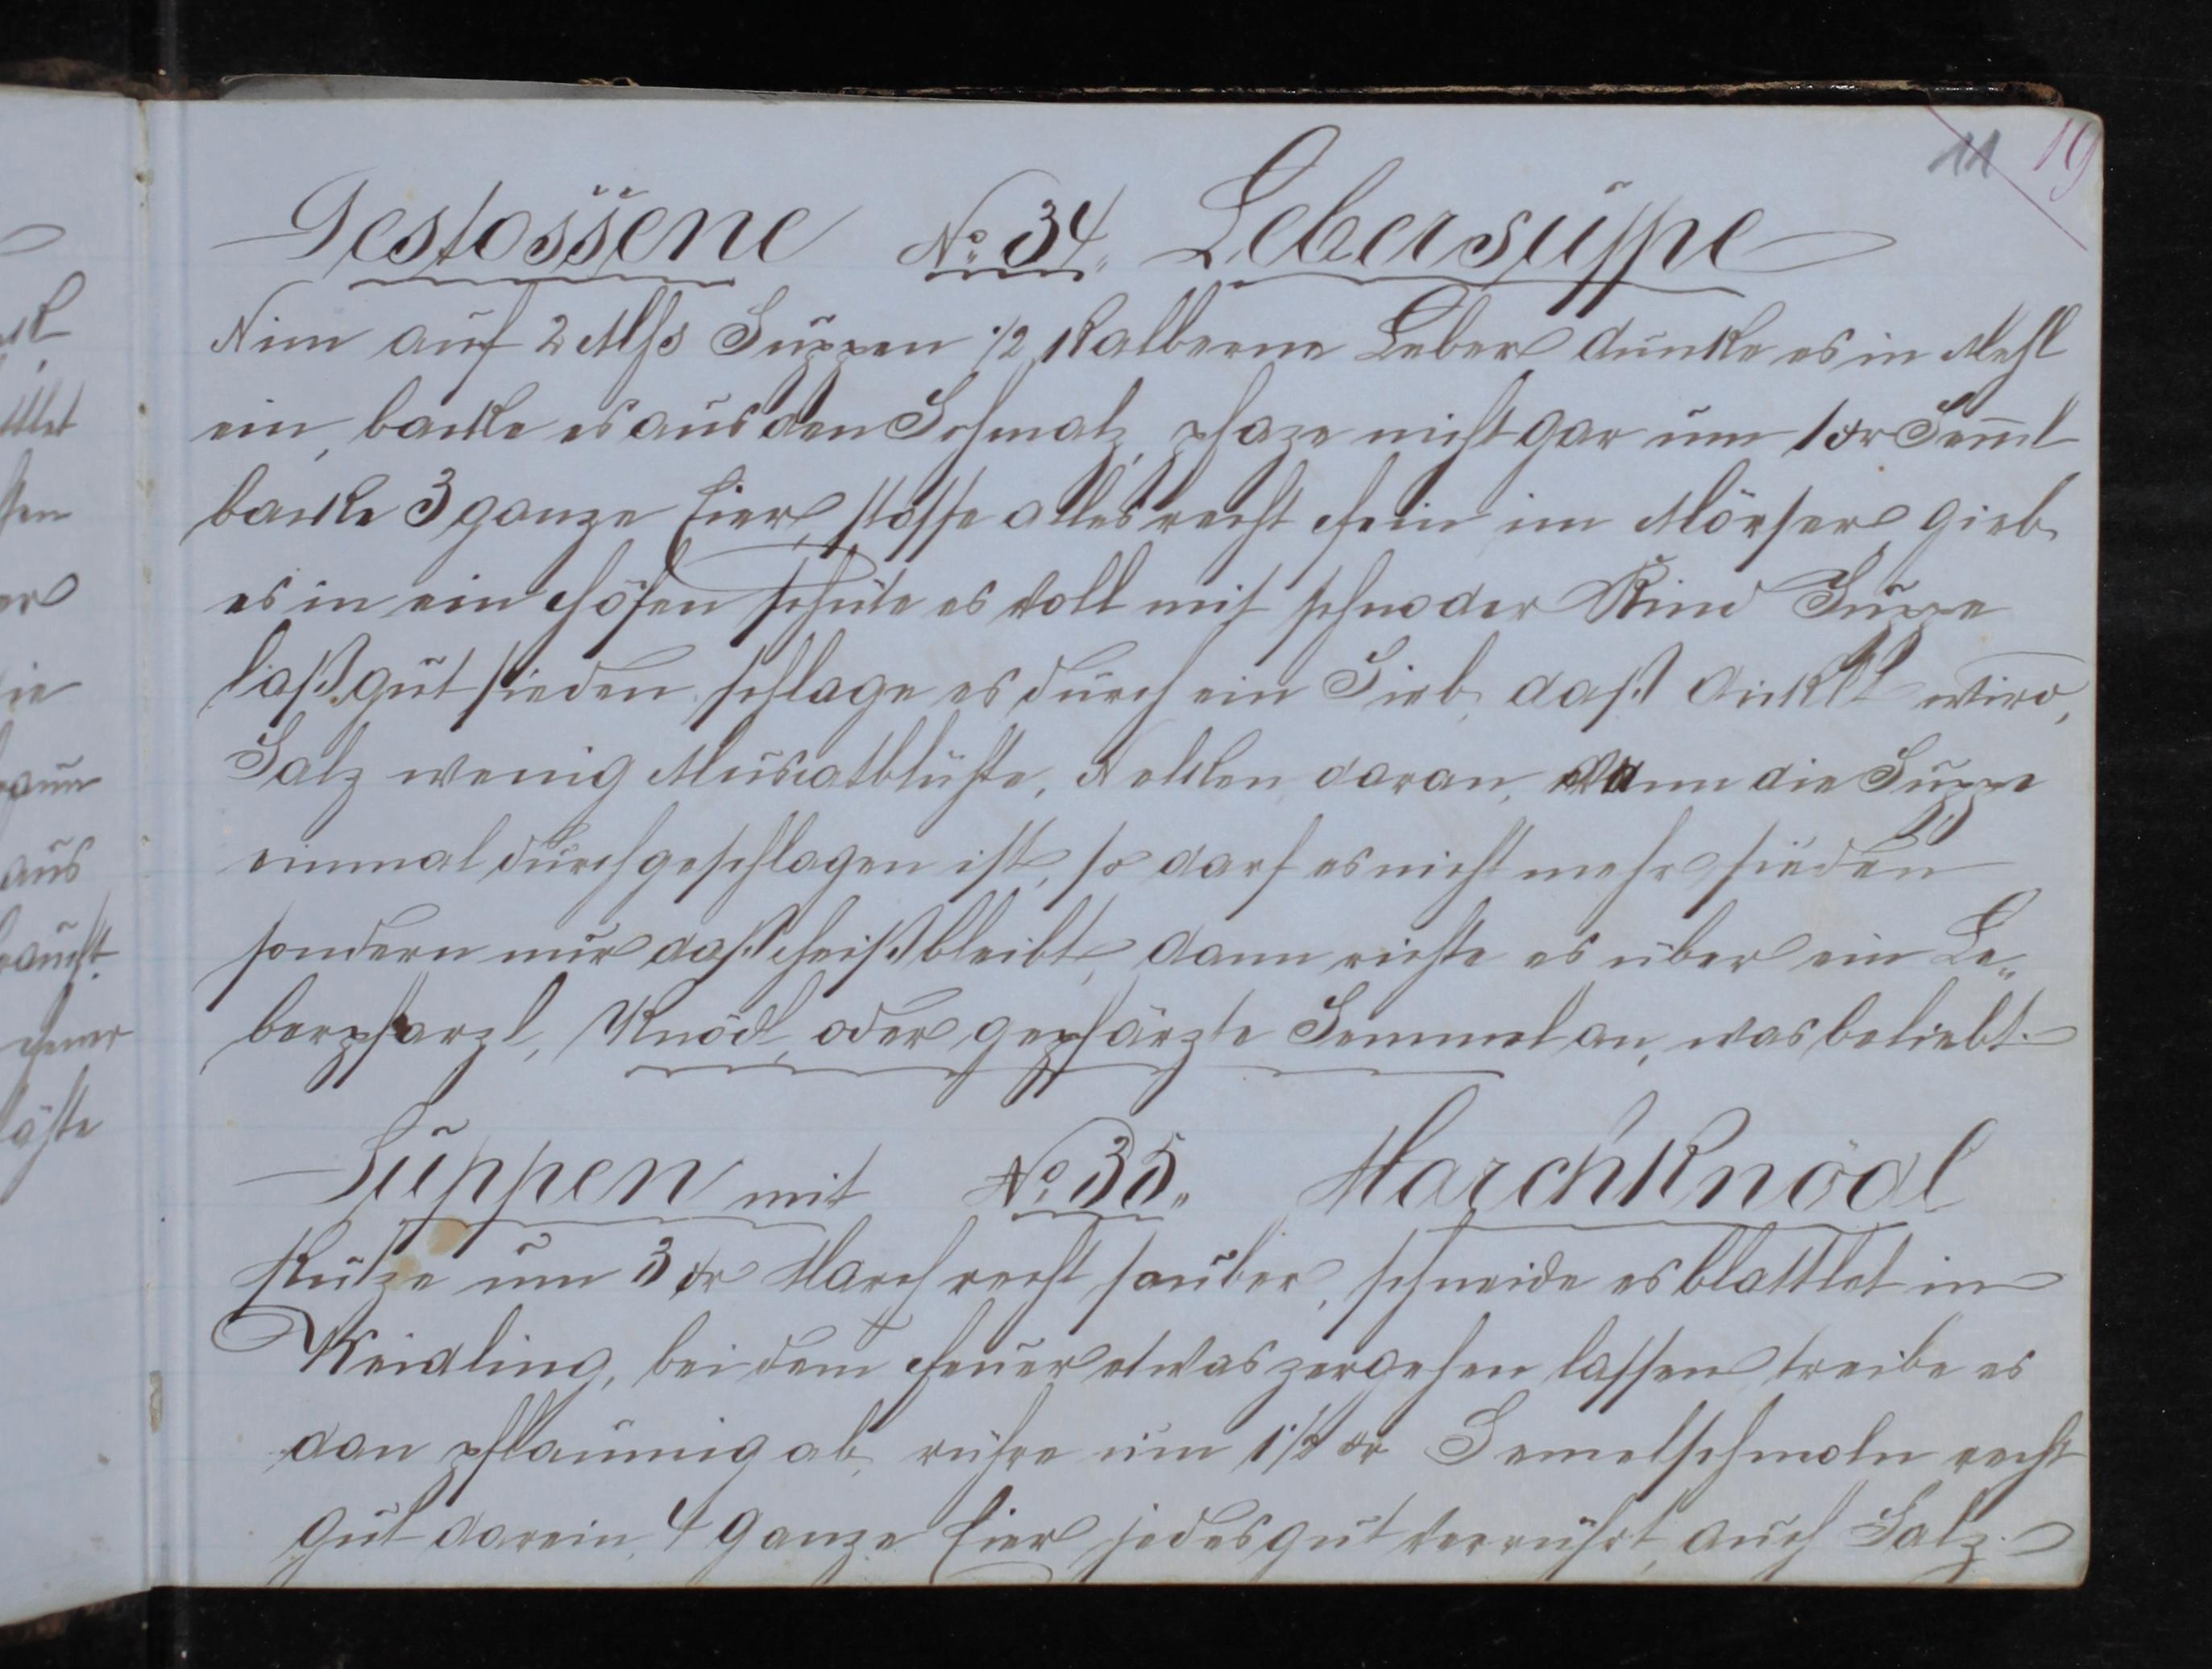 11 19
Gestossene No 34. Lebersuppe
Nim auf 2 Mß Suppen ½ Kalberne Leber dunke es in Mehl
ein, backe es aus den Schmalz, pfaze nicht gar um 1 xr Sem̄l
backe 3 ganze Eier, stosse alles recht fein im Mörser gieb
es in ein Höfen schüte es voll mit Rind Suppe
laß gut sieden schlage es durch ein Sieb, daß dicklet wird,
Salz wenig Muscatblühte, Nelken daran, wann die Suppe
einmal durchgeschlagen ist, so darf es nicht mehr sieden
sondern nur daß heiß bleibt, dann richte es über ein Le„
berpfarzl, Knödl, oder gepfärzte Semmel an, was beliebt.
Suppen mit No 35„ Marchknödl
Putze um 3 xr March recht sauber, schneide es blattlet in
Weidling, bei dem Feuer etwas zergehen lassen treibe es
dan pflaumig ab, rühre um 1½ xr Semelschmoln recht
gut darein, 4 ganze Eier jedes gut verrührt, auch Salz.